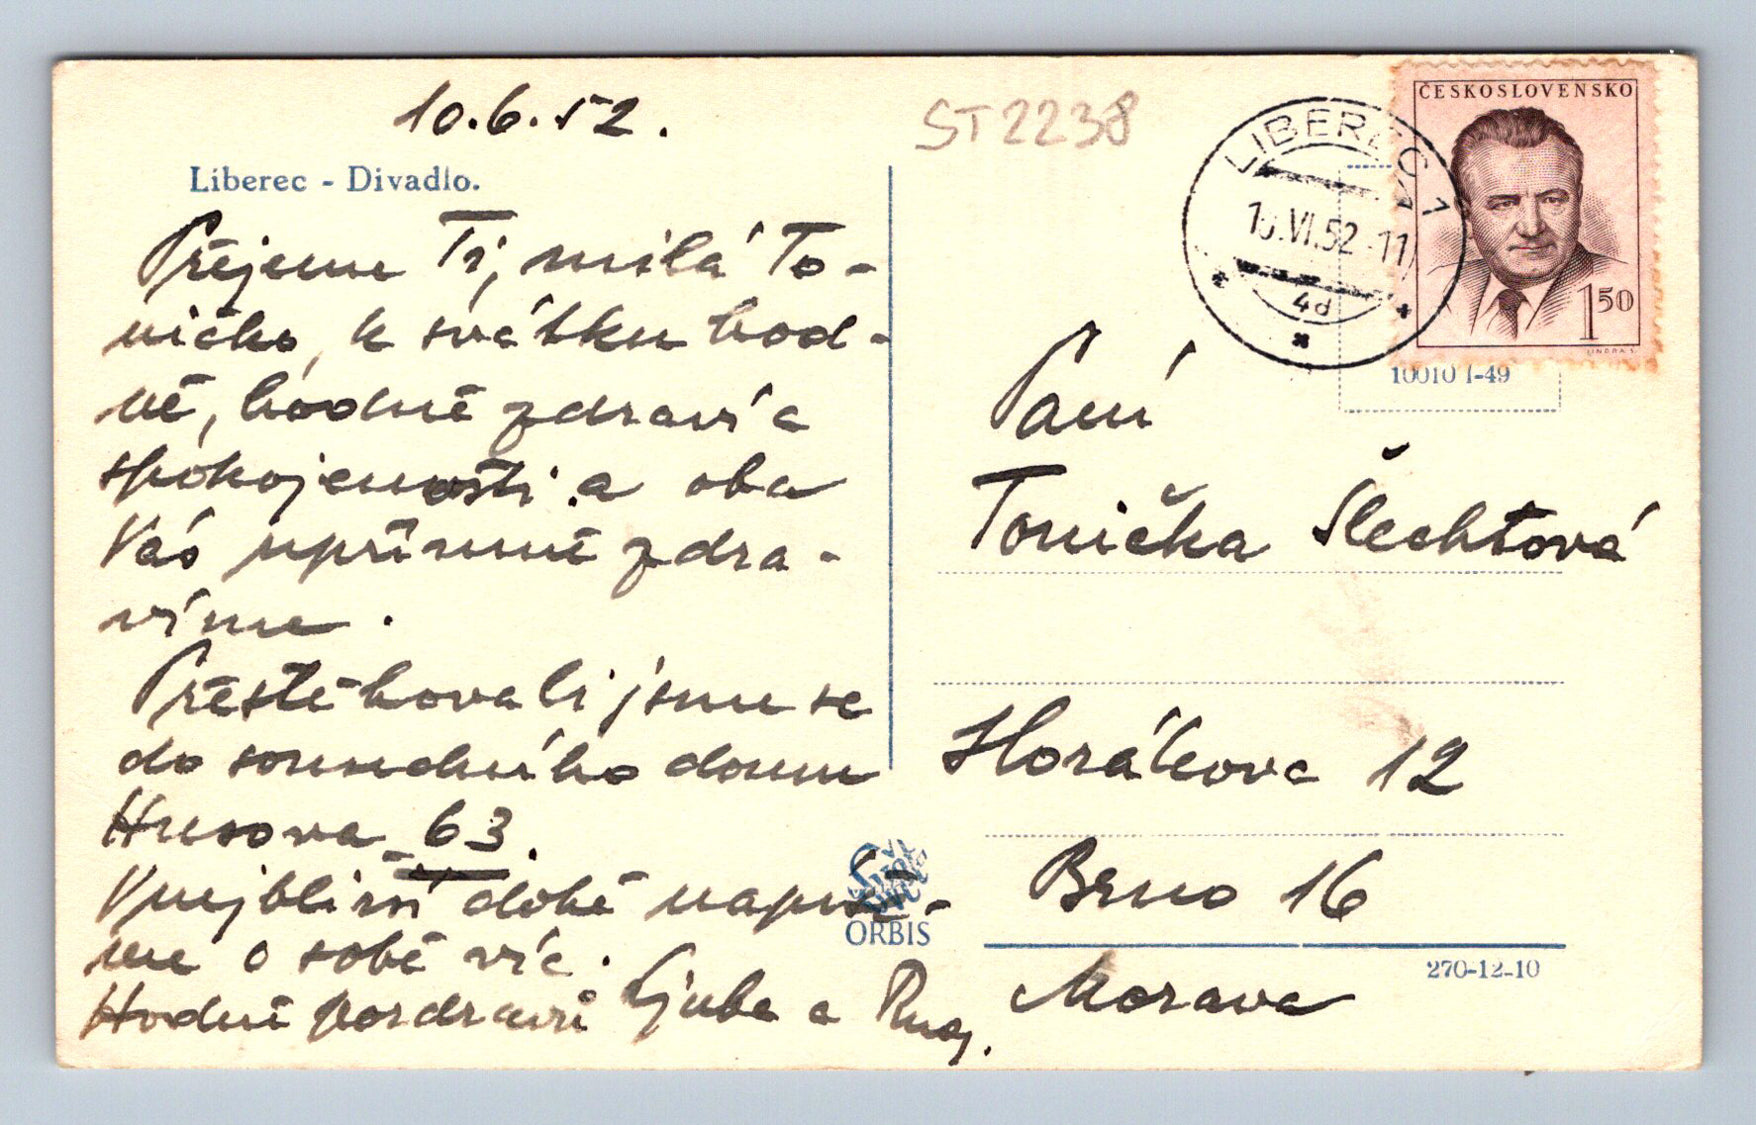 10.6.52.
ST 2238
Liberec - Divadlo.
Přejeme Ti, milá To-
ničko, k svátku hod-
ně, hodně zdraví a
spokojenosti a oba
Vás upřímně zdra-
víme.
Přestěhovali jsme se
do sousedního domu
Husova 63.
V nejbližší době napíše-
me o sobě víc.
Hodně pozdravů Ljuba a
ČESKOSLOVENSKO
150
LIBEREC 1
10.VI.52-11
4d
10010 I-49
Paní
Tonička Šlechtová
Horákova 12
Brno 16
Morava
ORBIS
270-12-10